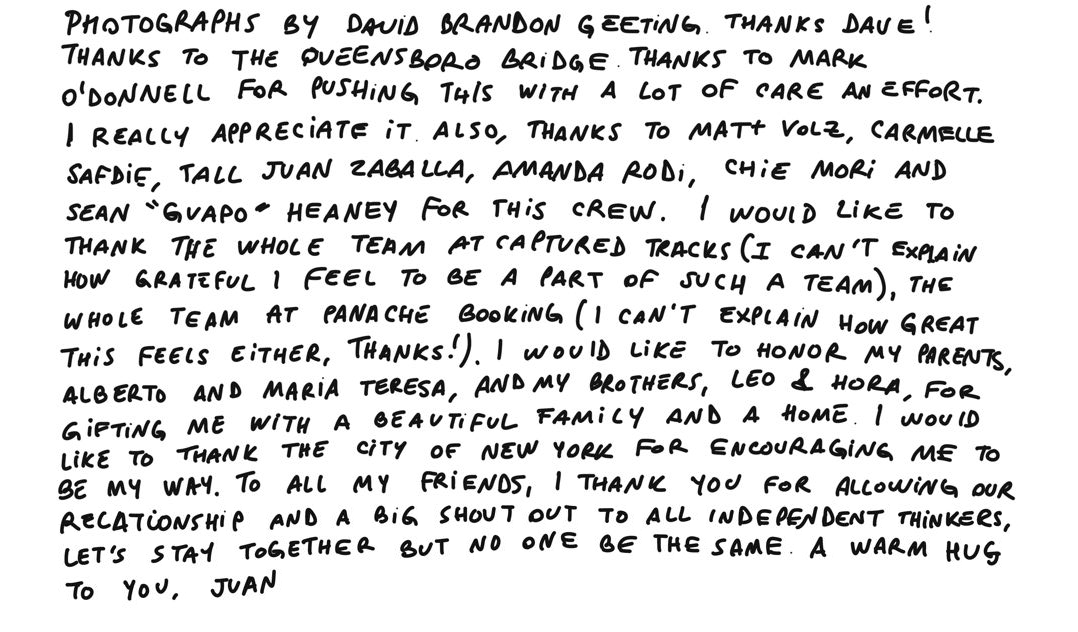 PHOTOGRAPHS BY DAVID BRANDON GEETING. THANKS DAVE!
THANKS TO THE QUEENSBORO BRIDGE. THANKS TO MARK
O'DONNELL FOR PUSHING THIS WITH A LOT OF CARE AN EFFORT.
I REALLY APPRECIATE IT. ALSO, THANKS TO MATT VOLZ, CARMELLE
SAFDIE, TALL JUAN ZABALLA, AMANDA RODI, CHIE MORI AND
SEAN "GUAPO" HEANEY FOR THIS CREW. I WOULD LIKE TO
THANK THE WHOLE TEAM AT CAPTURED TRACKS (I CAN'T EXPLAIN
HOW GRATEFUL I FEEL TO BE A PART OF SUCH A TEAM), THE
WHOLE TEAM AT PANACHE BOOKING (I CAN'T EXPLAIN HOW GREAT
THIS FEELS EITHER, THANKS!). I WOULD LIKE TO HONOR MY PARENTS,
ALBERTO AND MARIA TERESA, AND MY BROTHERS, LEO & HORA, FOR
GIFTING ME WITH A BEAUTIFUL FAMILY AND A HOME. I WOULD
LIKE TO THANK THE CITY OF NEW YORK FOR ENCOURAGING ME TO
BE MY WAY. TO ALL MY FRIENDS, I THANK YOU FOR ALLOWING OUR
RELATIONSHIP AND A BIG SHOUT OUT TO ALL INDEPENDENT THINKERS,
LET'S STAY TOGETHER BUT NO ONE BE THE SAME. A WARM HUG
TO YOU, JUAN